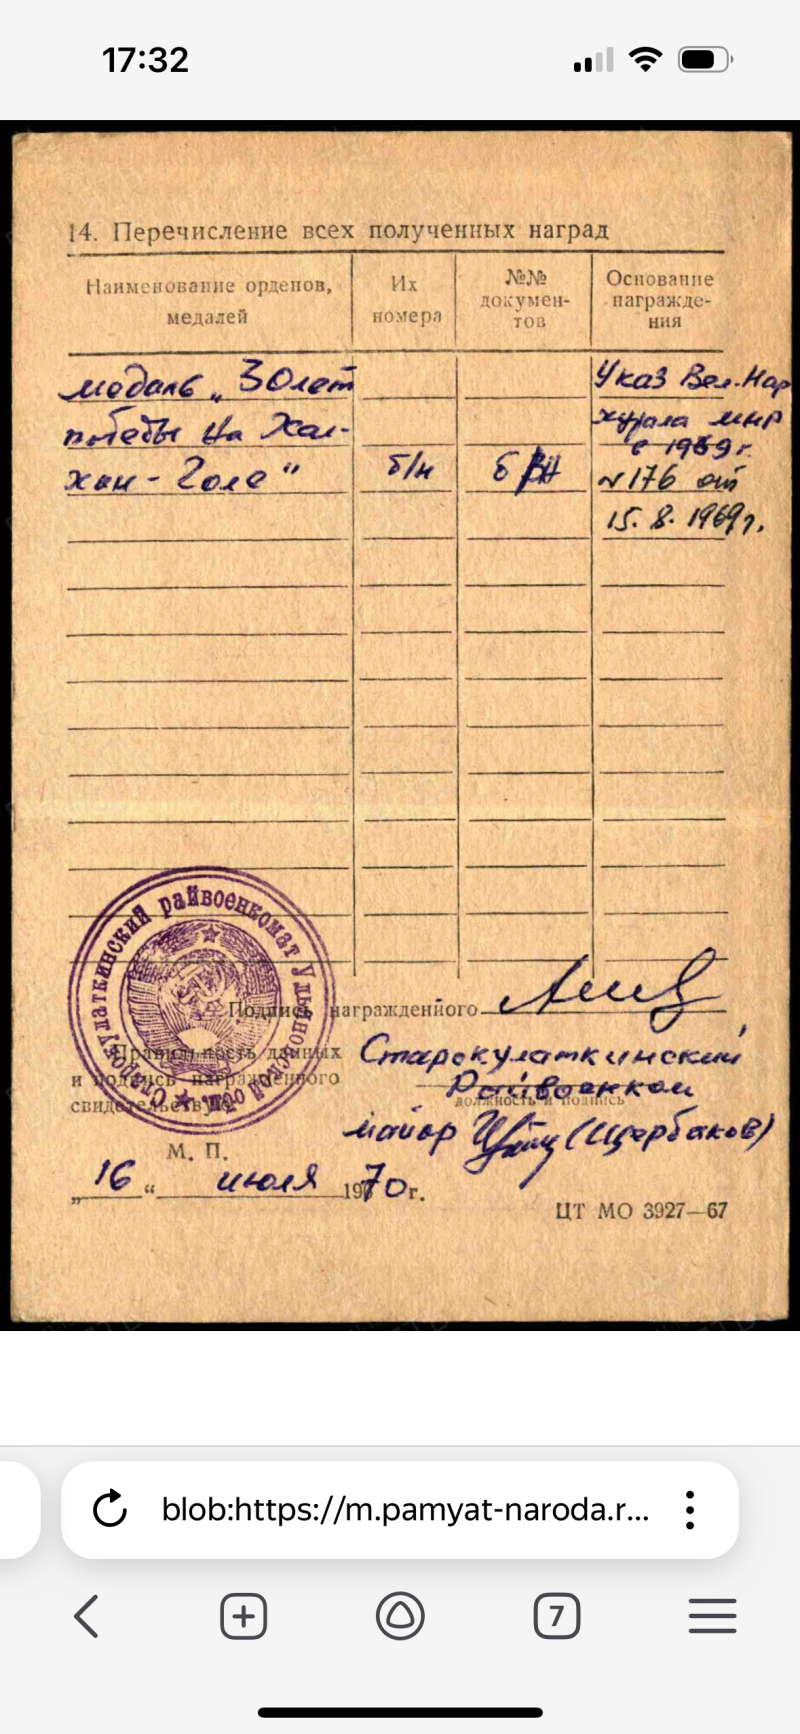 17:32
14. Перечисление всех полученных наград
Наименование орденов, медалей
Их номера
№№ докумен-тов
Основание награжде-ния
медаль „30 лет
победы на Хал-
хин-Голе"
б/н
б
Указ Вел. Нар
хурала МНР
с 1969 г.
№ 176 от
15. 8. 1969 г.
Старокулаткинский райвоенкомат Ульяновской обл.
Подпись награжденного
Правильность данных
и подпись награжденного
свидетельствую
Старокулаткинский
Райвоенком
должность и подпись
майор (Щербаков)
М. П.
„16" июля 1970 г.
ЦТ МО 3927—67
blob:https://m.pamyat-naroda.r...
7